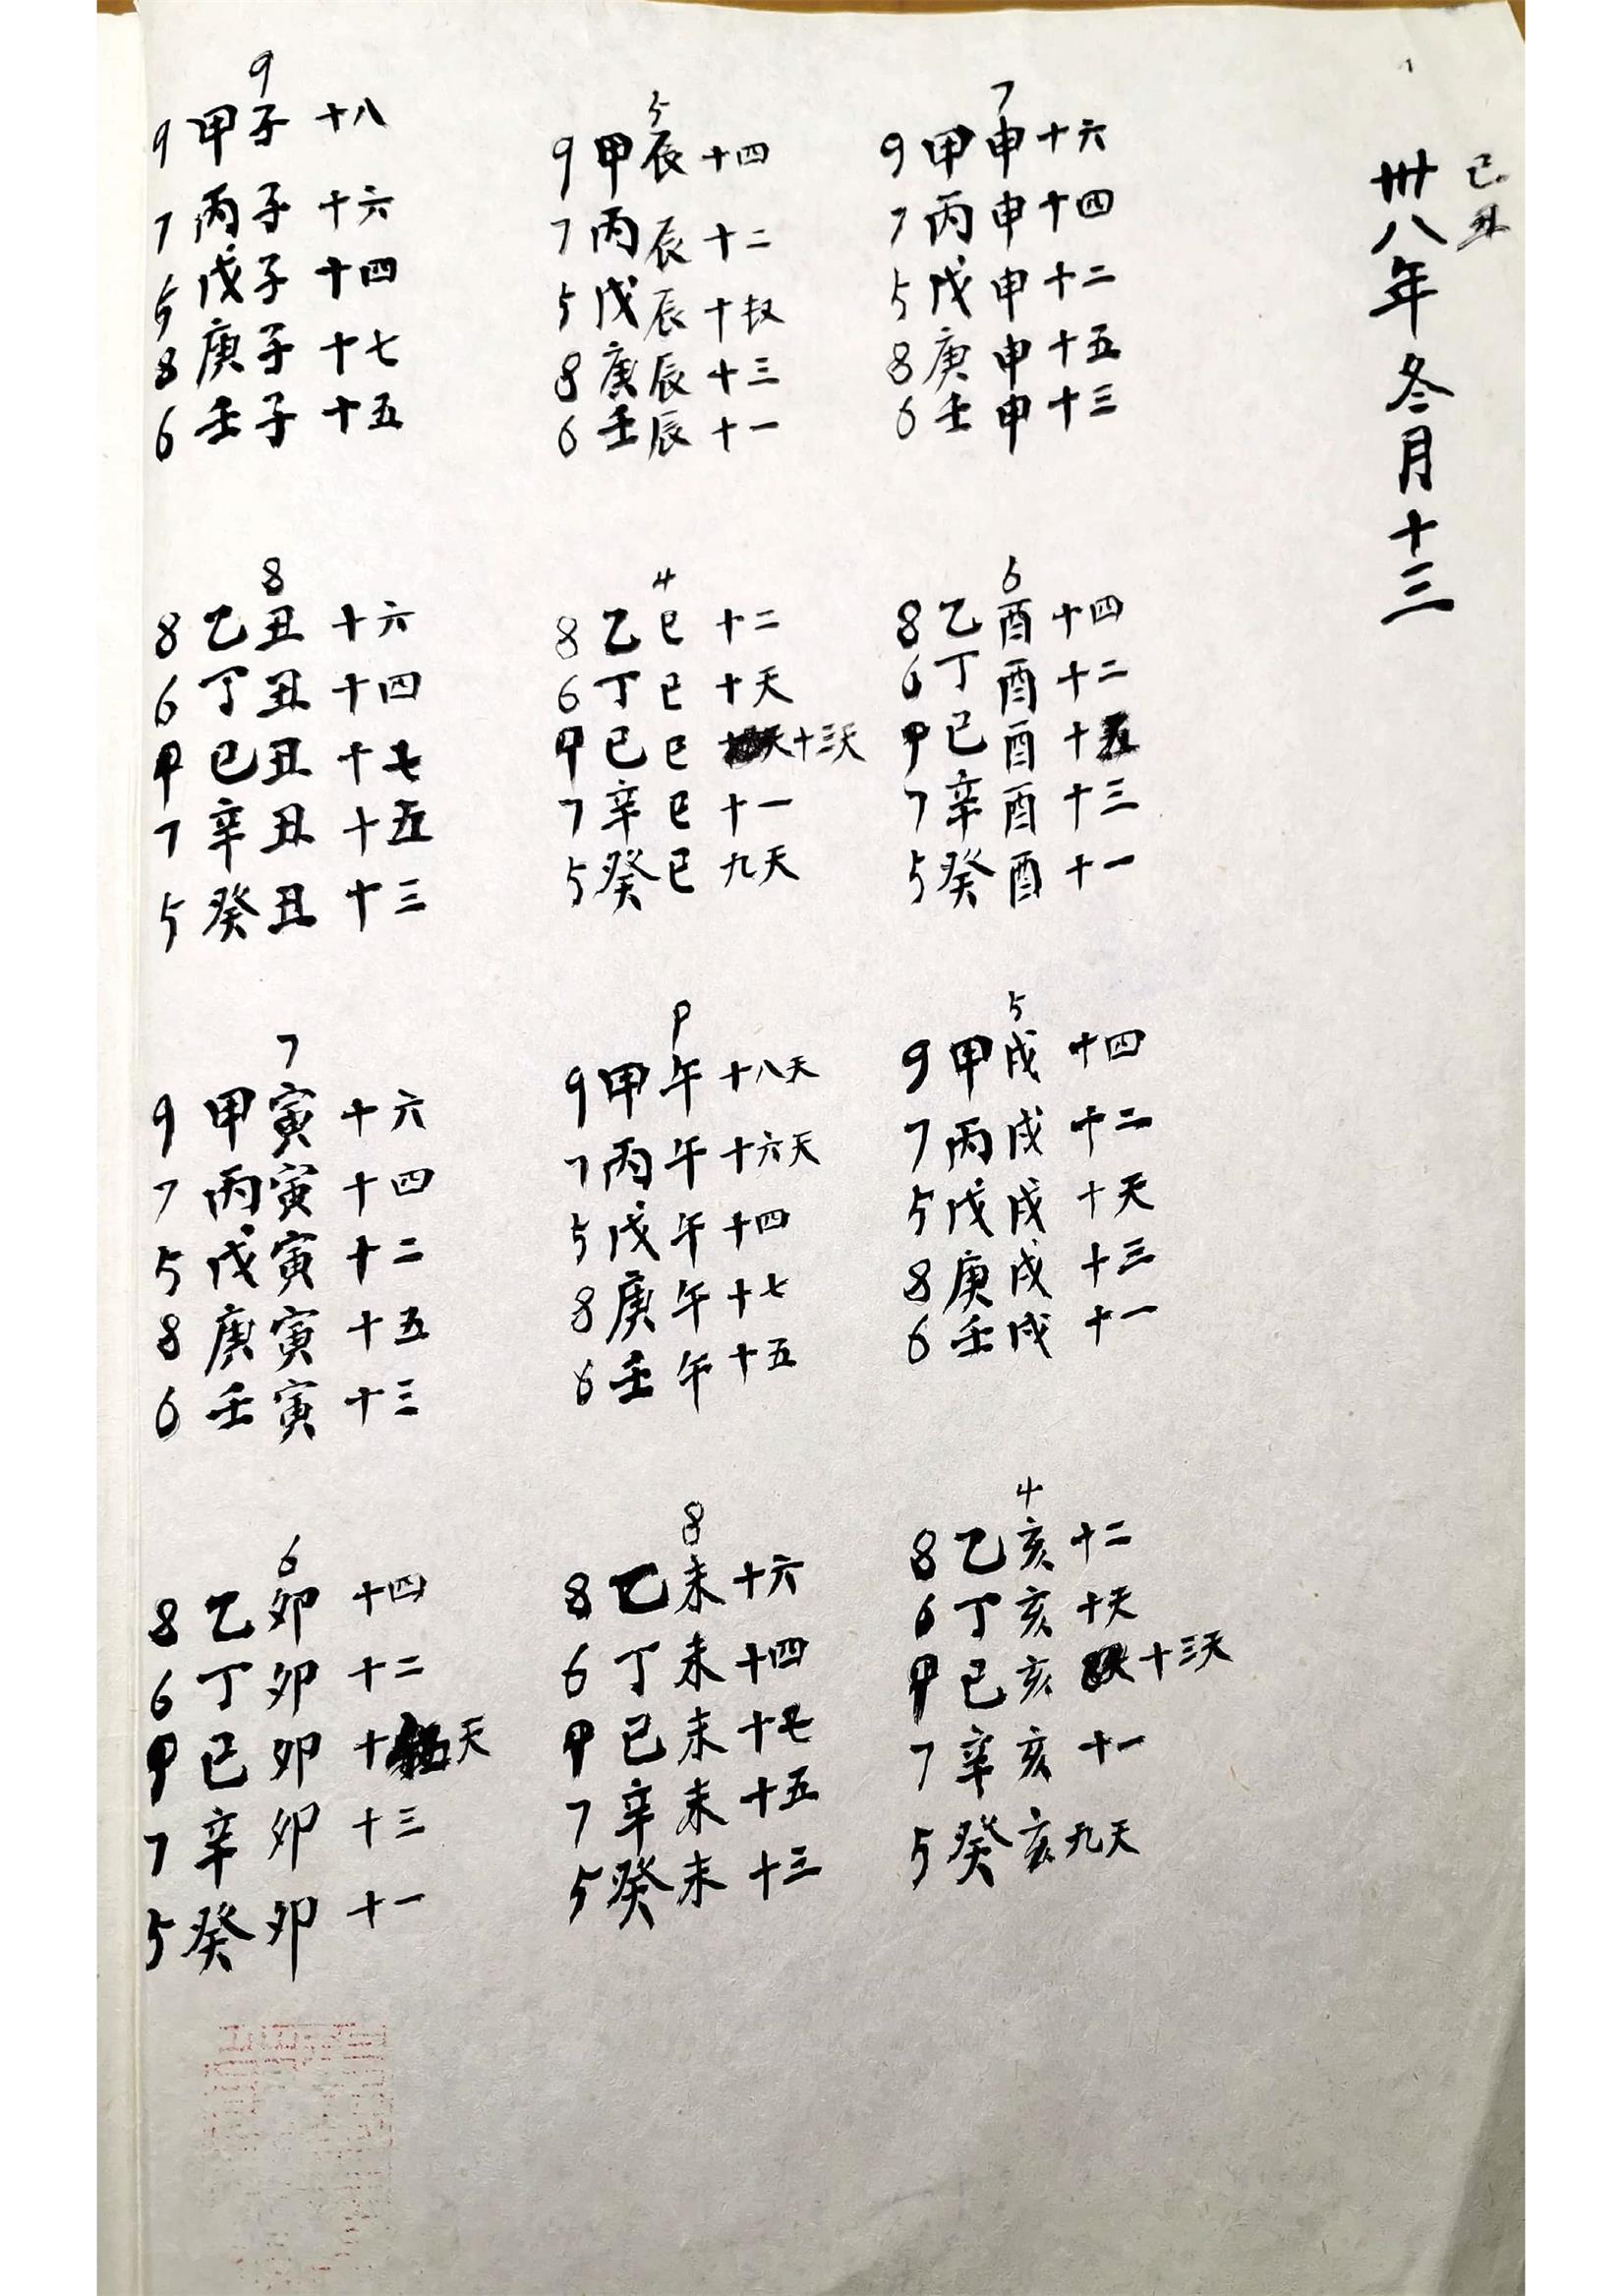 己丑
卅八年冬月十三
9
9 甲子 十八
7 丙子 十六
5 戊子 十四
8 庚子 十七
6 壬子 十五
8
8 乙丑 十六
6 丁丑 十四
甲 己丑 十七
7 辛丑 十五
5 癸丑 十三
7
9 甲寅 十六
7 丙寅 十四
5 戊寅 十二
8 庚寅 十五
6 壬寅 十三
6
8 乙卯 十四
6 丁卯 十二
甲 己卯 十 天
7 辛卯 十三
5 癸卯 十一
5
9 甲辰 十四
7 丙辰 十二
5 戊辰 十
8 庚辰 十三
6 壬辰 十一
4
8 乙巳 十二
6 丁巳 十天
甲 己巳 十三天
7 辛巳 十一
5 癸巳 九天
9 甲午 十八天
7 丙午 十六天
5 戊午 十四
8 庚午 十七
6 壬午 十五
8
8 乙未 十六
6 丁未 十四
甲 己未 十七
7 辛未 十五
5 癸未 十三
7
9 甲申 十六
7 丙申 十四
5 戊申 十二
8 庚申 十五
6 壬申 十三
6
8 乙酉 十四
6 丁酉 十二
甲 己酉 十五
7 辛酉 十三
5 癸酉 十一
5
9 甲戌 十四
7 丙戌 十二
5 戊戌 十天
8 庚戌 十三
6 壬戌 十一
4
8 乙亥 十二
6 丁亥 十天
甲 己亥 十三天
7 辛亥 十一
5 癸亥 九天